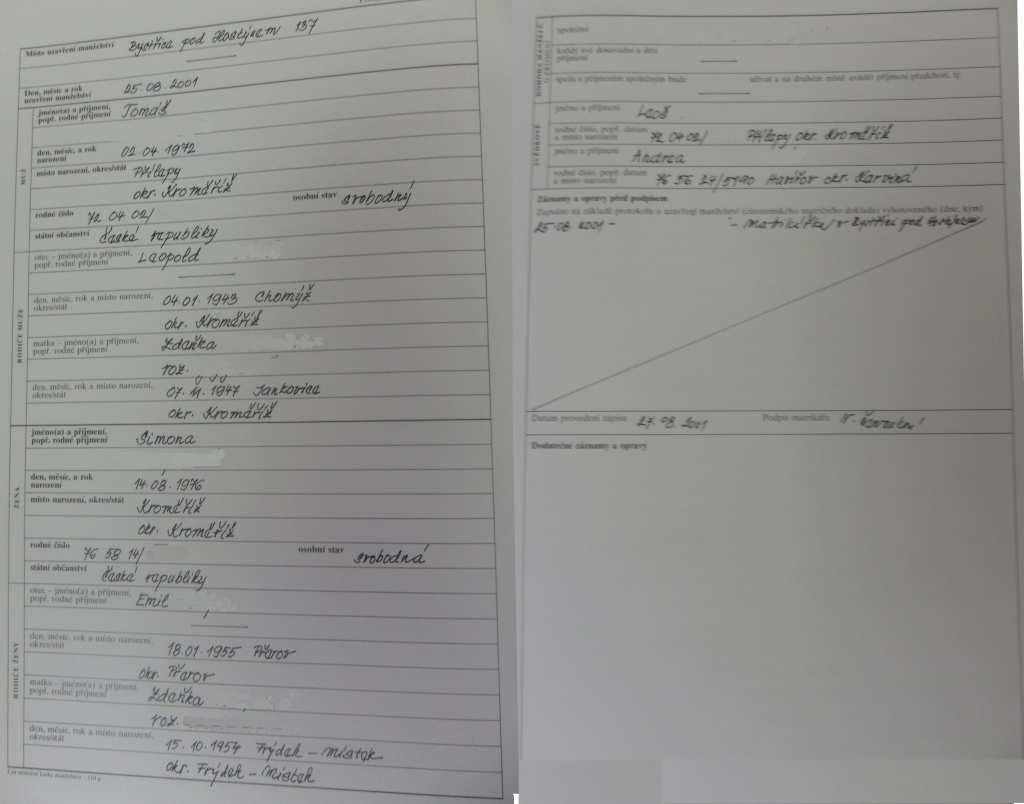 Místo uzavření manželství Bystřice pod Hostýnem 137
Den, měsíc a rok
uzavření manželství 25.08.2001
MUŽ
jméno(a) a příjmení,
popř. rodné příjmení Tomáš
den, měsíc, a rok
narození 02.04.1972
místo narození, okres/stát Přílepy
okr. Kroměříž
rodné číslo 72 04 02/ osobní stav svobodný
státní občanství České republiky
RODIČE MUŽE
otec – jméno(a) a příjmení,
popř. rodné příjmení Leopold
den, měsíc, rok a místo narození,
okres/stát 04.01.1943 Chomýž
okr. Kroměříž
matka – jméno(a) a příjmení,
popř. rodné příjmení Zdeňka
roz.
den, měsíc, rok a místo narození,
okres/stát 07.11.1947 Jankovice
okr. Kroměříž
ŽENA
jméno(a) a příjmení,
popř. rodné příjmení Simona
den, měsíc, a rok
narození 14.08.1976
místo narození, okres/stát Kroměříž
okr. Kroměříž
rodné číslo 76 58 14/ osobní stav svobodná
státní občanství České republiky
RODIČE ŽENY
otec – jméno(a) a příjmení,
popř. rodné příjmení Emil
den, měsíc, rok a místo narození,
okres/stát 18.01.1955 Přerov
okr. Přerov
matka – jméno(a) a příjmení,
popř. rodné příjmení Zdeňka
roz.
den, měsíc, rok a místo narození,
okres/stát 15.10.1954 Frýdek – Místek
okr. Frýdek – Místek
společné
každý své dosavadní a děti
příjmení
spolu s příjmením společným bude užívat a na druhém místě uvádět příjmení předchozí, tj.
SVĚDKOVÉ
jméno a příjmení Leoš
rodné číslo, popř. datum
a místo narození 72 04 02/ Přílepy okr. Kroměříž
jméno a příjmení Andrea
rodné číslo, popř. datum
a místo narození 76 56 27/5190 Havířov okr. Karviná
Záznamy a opravy před podpisem
Zapsáno na základě protokolu o uzavření manželství (cizozemského matričního dokladu) vyhotoveného (dne, kým)
25.08.2001 – – Matrikářka v Bystřici pod Hostýnem
Datum provedení zápisu 27.08.2001 Podpis matrikáře
Dodatečné záznamy a opravy